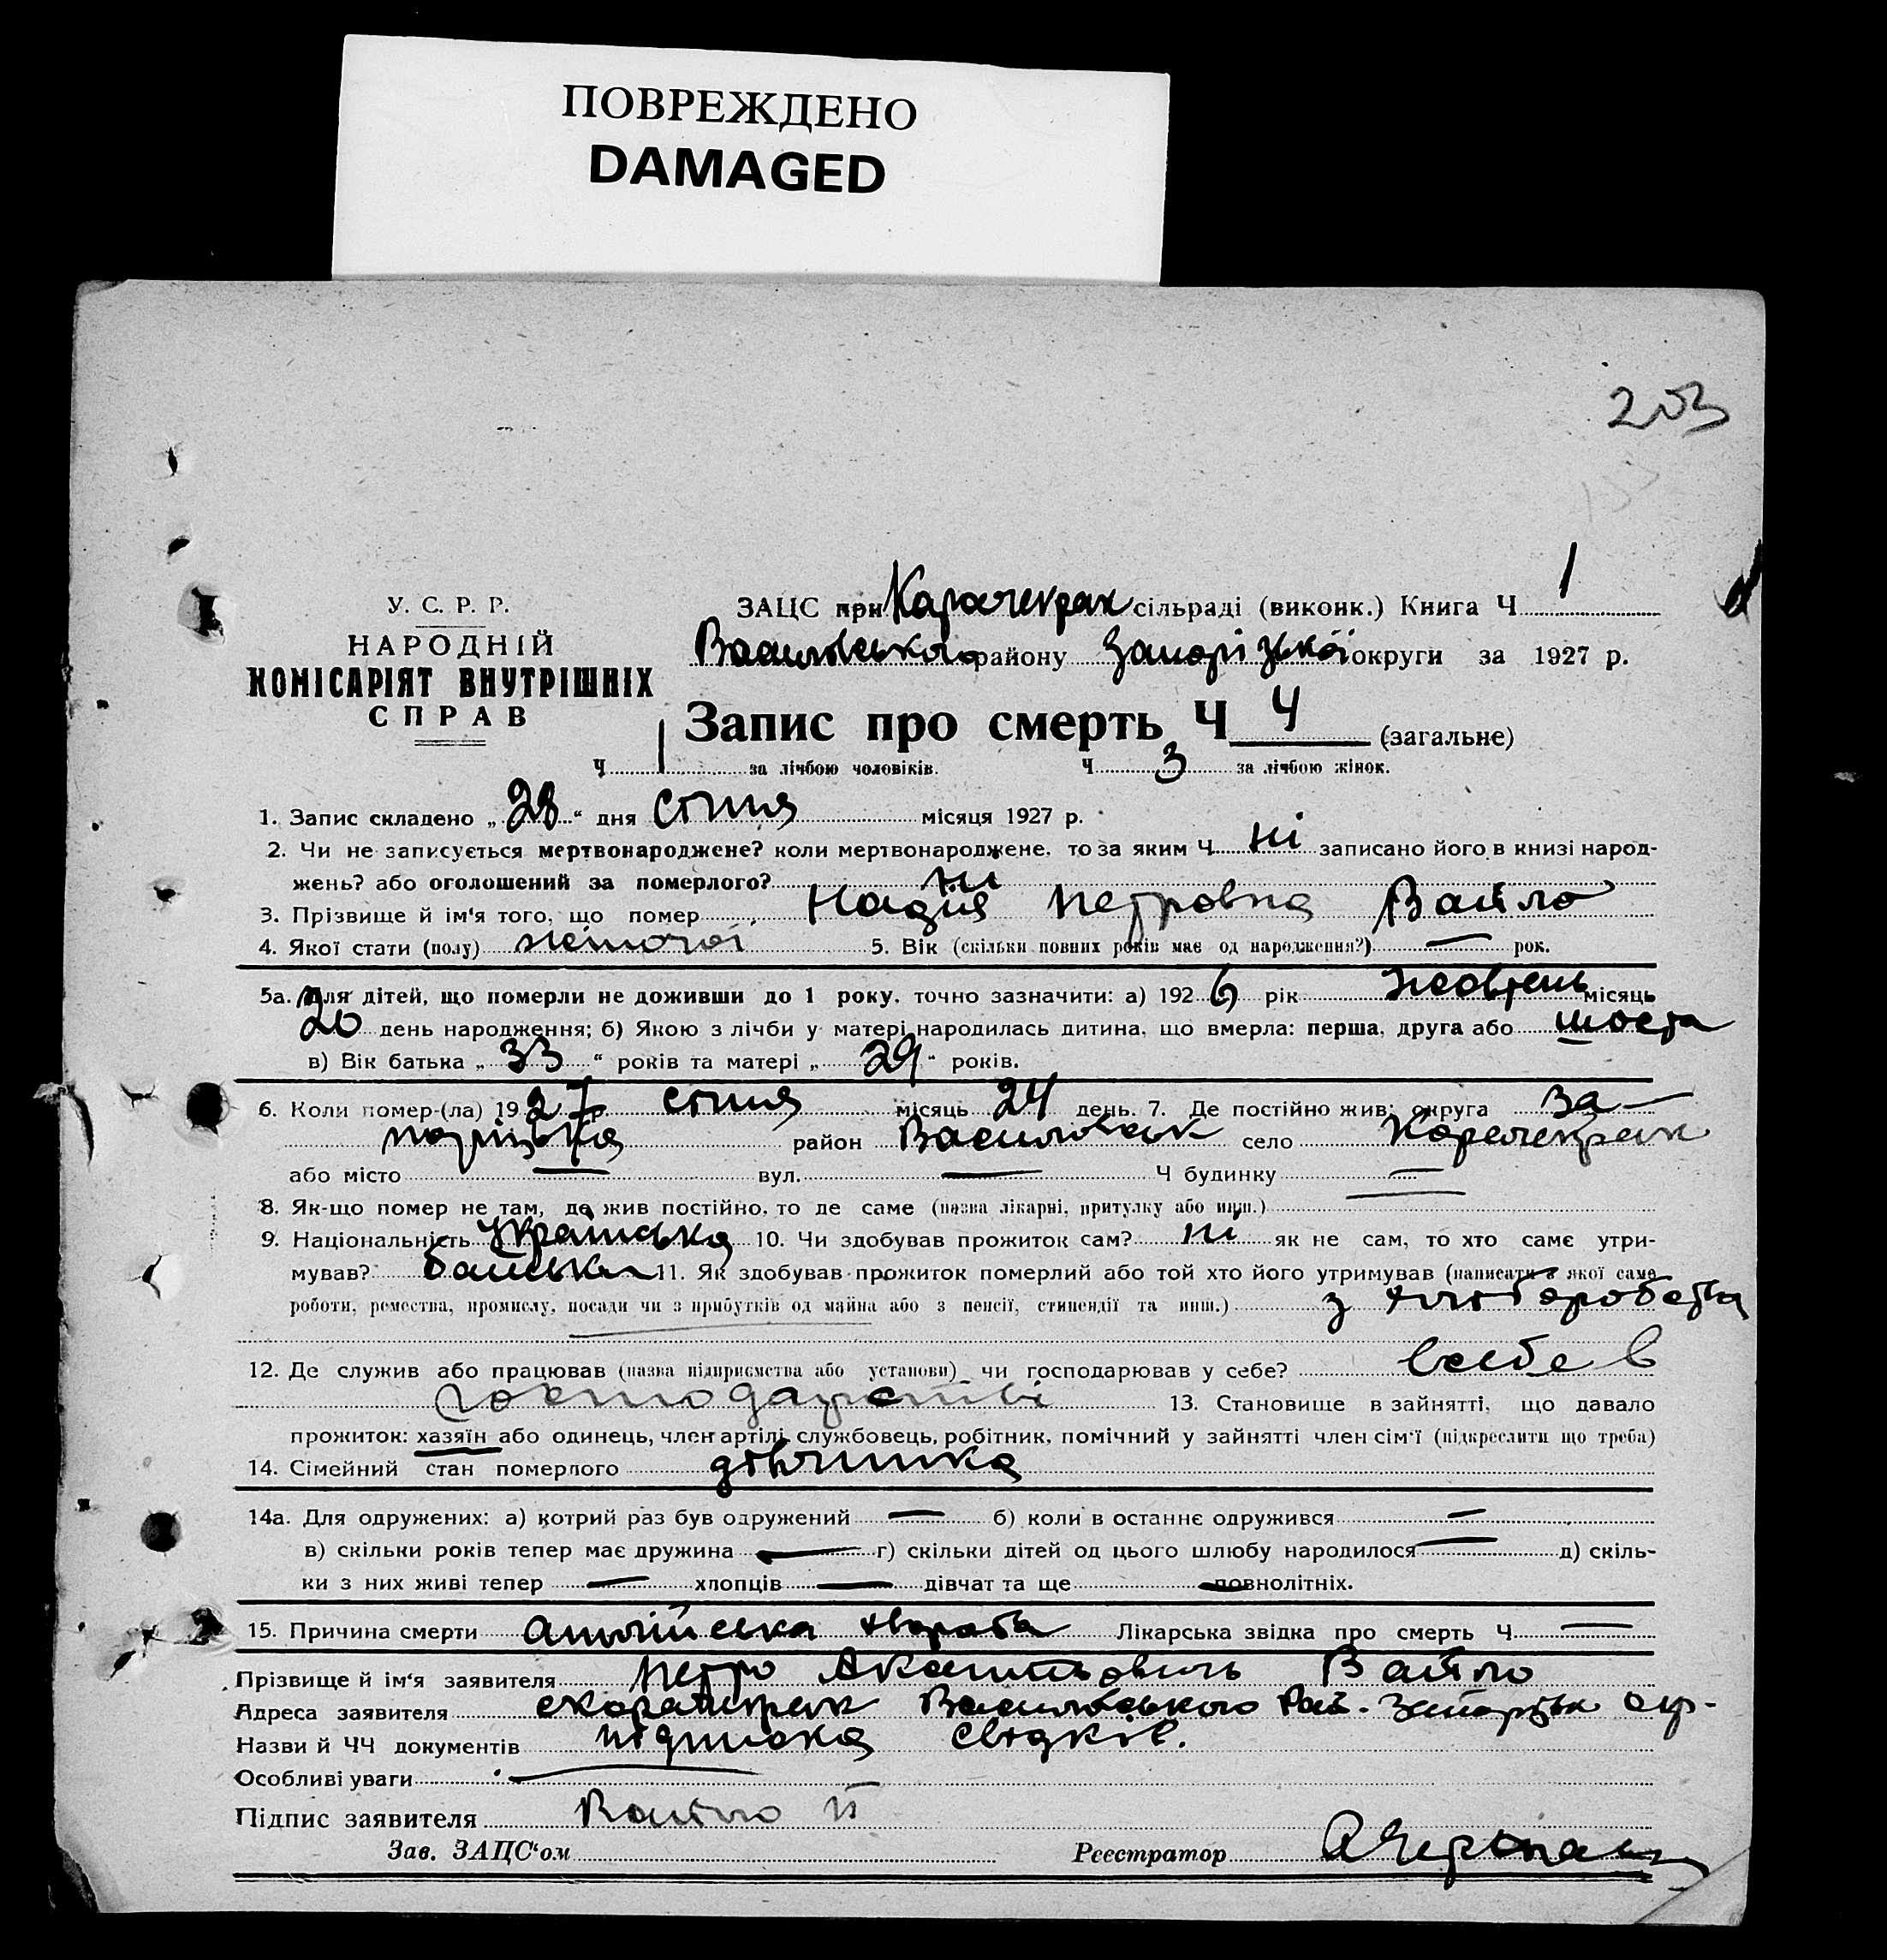 ПОВРЕЖДЕНО
DAMAGED
203
У. С. Р. Р.
НАРОДНІЙ
КОМІСАРІЯТ ВНУТРІШНІХ
СПРАВ
ЗАЦС при Карачекрак сільраді (виконк.) Книга Ч 1
Василівського району Запорізької округи за 1927 р.
Запис про смерть Ч 4 (загальне)
Ч 1 за лічбою чоловіків. Ч 3 за лічбою жінок.
1. Запис складено „28“ дня січня місяця 1927 р.
2. Чи не записується мертвонароджене? коли мертвонароджене, то за яким Ч ні записано його в книзі народ-
жень? або оголошений за померлого? ні
3. Прізвище й ім'я того, що помер Надія Петровна Вайло
4. Якої стати (полу) жіночої 5. Вік (скільки повних років має од народження?) — рок.
5а. Для дітей, що померли не доживши до 1 року, точно зазначити: а) 1926 рік жовтень місяць
20 день народження; б) Якою з лічби у матері народилась дитина, що вмерла: перша, друга або шоста
в) Вік батька „33“ років та матері „29“ років.
6. Коли помер-(ла) 1927 р. січня місяць 24 день. 7. Де постійно жив: округа За-
поріцька район Василівськ село Карачекрак
або місто — вул. — Ч будинку —
8. Як-що помер не там, де жив постійно, то де саме (назва лікарні, притулку або инш.) —
9. Національність Українська 10. Чи здобував прожиток сам? ні як не сам, то хто саме утри-
мував? батьки 11. Як здобував прожиток померлий або той хто його утримував (написати з якої саме
роботи, ремества, промислу, посади чи з прибутків од майна або з пенсії, стипендії та инш.) з хліборобства
12. Де служив або працював (назва підприємства або установи) чи господарював у себе? в себе в
господарстві 13. Становище в зайнятті, що давало
прожиток: хазяїн або одинець, член артілі, службовець, робітник, помічний у зайнятті член сім'ї (підкреслити що треба)
14. Сімейний стан померлого дівчинка
14а. Для одружених: а) котрий раз був одружений — б) коли в останнє одружився —
в) скільки років тепер має дружина — г) скільки дітей од цього шлюбу народилося — д) скіль-
ки з них живі тепер — хлопців — дівчат та ще — повнолітніх.
15. Причина смерти англійська хвороба Лікарська звідка про смерть Ч —
Прізвище й ім'я заявителя Петро Вайло
Адреса заявителя Василівського Рай. Запорізьк окр-
Назви й ЧЧ документів підписка свідків.
Особливі уваги —
Підпис заявителя Вайло П
Зав. ЗАЦС'ом Реєстратор